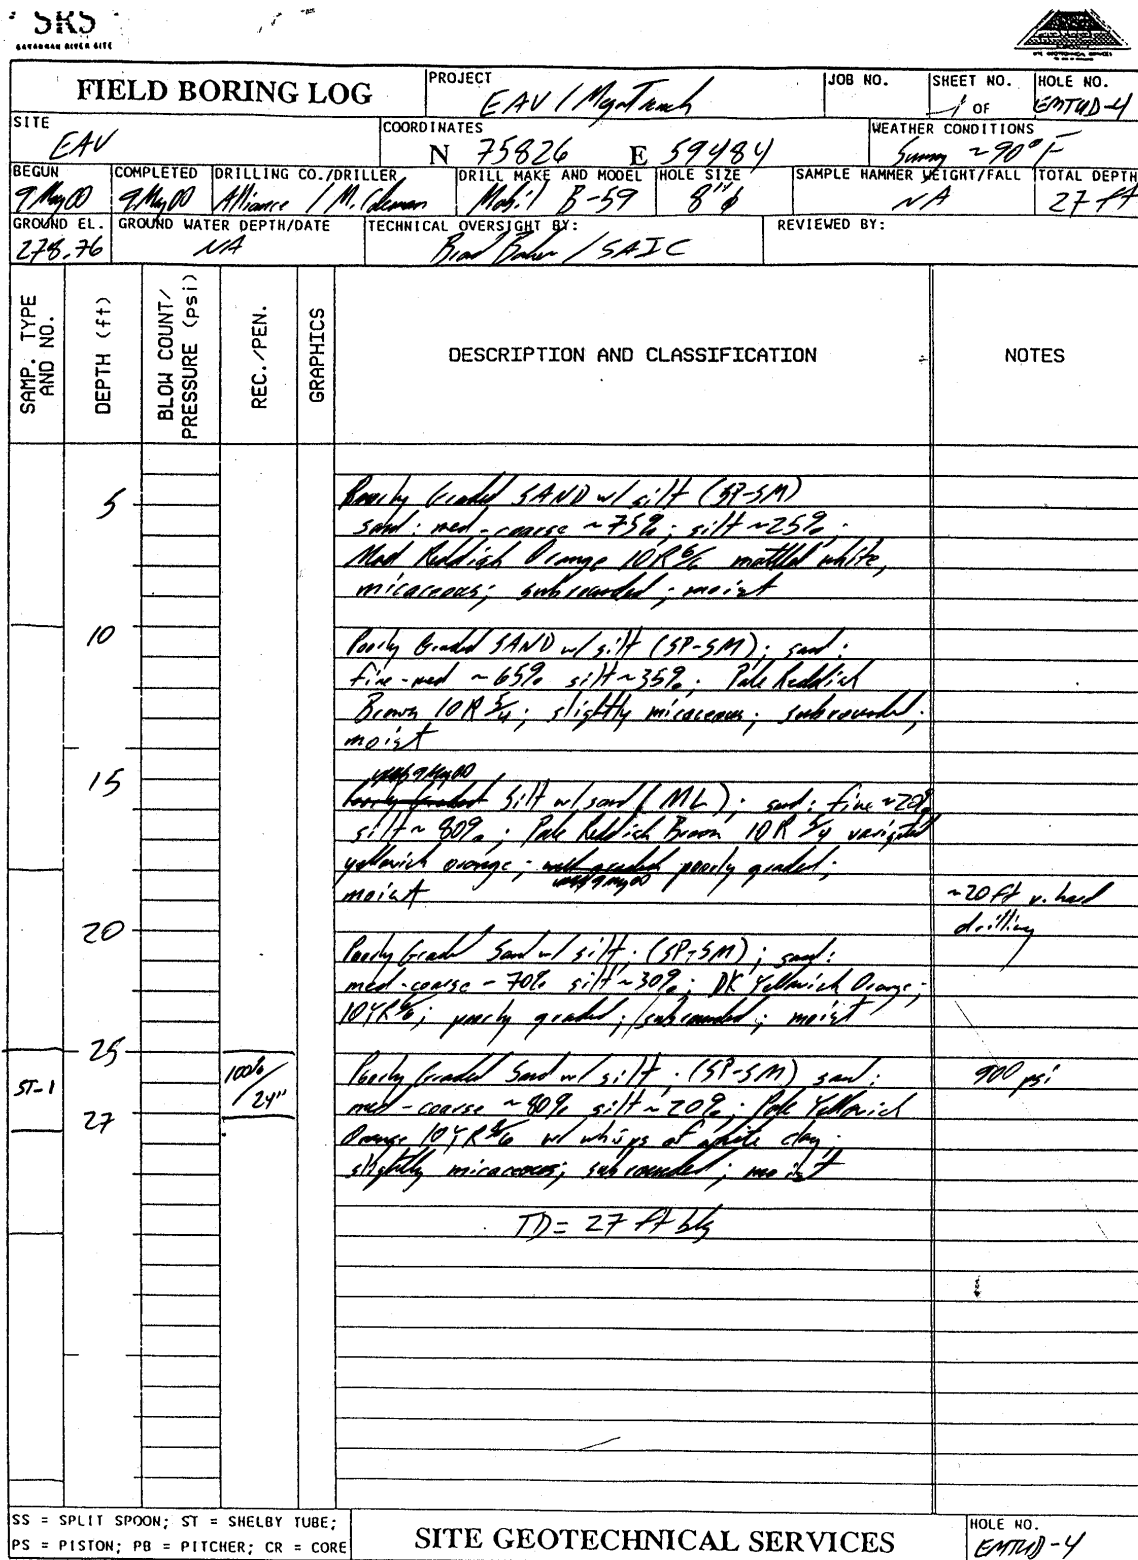 SRS
SAVANNAH RIVER SITE
SITE GEOTECHNICAL SERVICES
FIELD BORING LOG
PROJECT
EAV /
JOB NO.
SHEET NO.
1 OF
HOLE NO.
SITE
EAV
COORDINATES
N 75826 E 59484
WEATHER CONDITIONS
Sunny ~90°F
BEGUN
9May00
COMPLETED
9May00
DRILLING CO./DRILLER
Alliance / M. Coleman
DRILL MAKE AND MODEL
Mobil B-59
HOLE SIZE
8"ϕ
SAMPLE HAMMER WEIGHT/FALL
NA
TOTAL DEPTH
27 ft
GROUND EL.
278.76
GROUND WATER DEPTH/DATE
NA
TECHNICAL OVERSIGHT BY:
Brad / SAIC
REVIEWED BY:
SAMP. TYPE AND NO.
DEPTH (ft)
BLOW COUNT/ PRESSURE (psi)
REC./PEN.
GRAPHICS
DESCRIPTION AND CLASSIFICATION
NOTES
5
Poorly Graded SAND w/ silt (SP-SM)
sand: med-coarse ~75%; silt ~25%;
Mod Reddish Orange 10R 6/6 mottled white,
micaceous; subrounded; moist
10
Poorly Graded SAND w/ silt (SP-SM); sand:
fine-med ~65% silt ~35%; Pale Reddish
Brown 10R 5/4; slightly micaceous; subrounded;
moist
9May00
15
Poorly Graded Silt w/ sand (ML); sand: fine ~20%
silt ~ 80%; Pale Reddish Brown 10R 5/4
yellowish orange; well graded poorly graded;
9May00
moist
~20 ft v. hard
drilling
20
Poorly Graded Sand w/ silt; (SP-SM); sand:
med-coarse ~70% silt ~30%; DK Yellowish Orange;
10YR 6/6; poorly graded; subrounded; moist
25
ST-1
100% / 24"
Poorly Graded Sand w/ silt; (SP-SM) sand:
900 psi
med-coarse ~80% silt ~20%; Pale Yellowish
27
Orange 10YR 8/6 w/ whisps of white clay;
slightly micaceous; subrounded; moist
TD= 27 ft bls
SS = SPLIT SPOON; ST = SHELBY TUBE;
PS = PISTON; PB = PITCHER; CR = CORE
SITE GEOTECHNICAL SERVICES
HOLE NO.